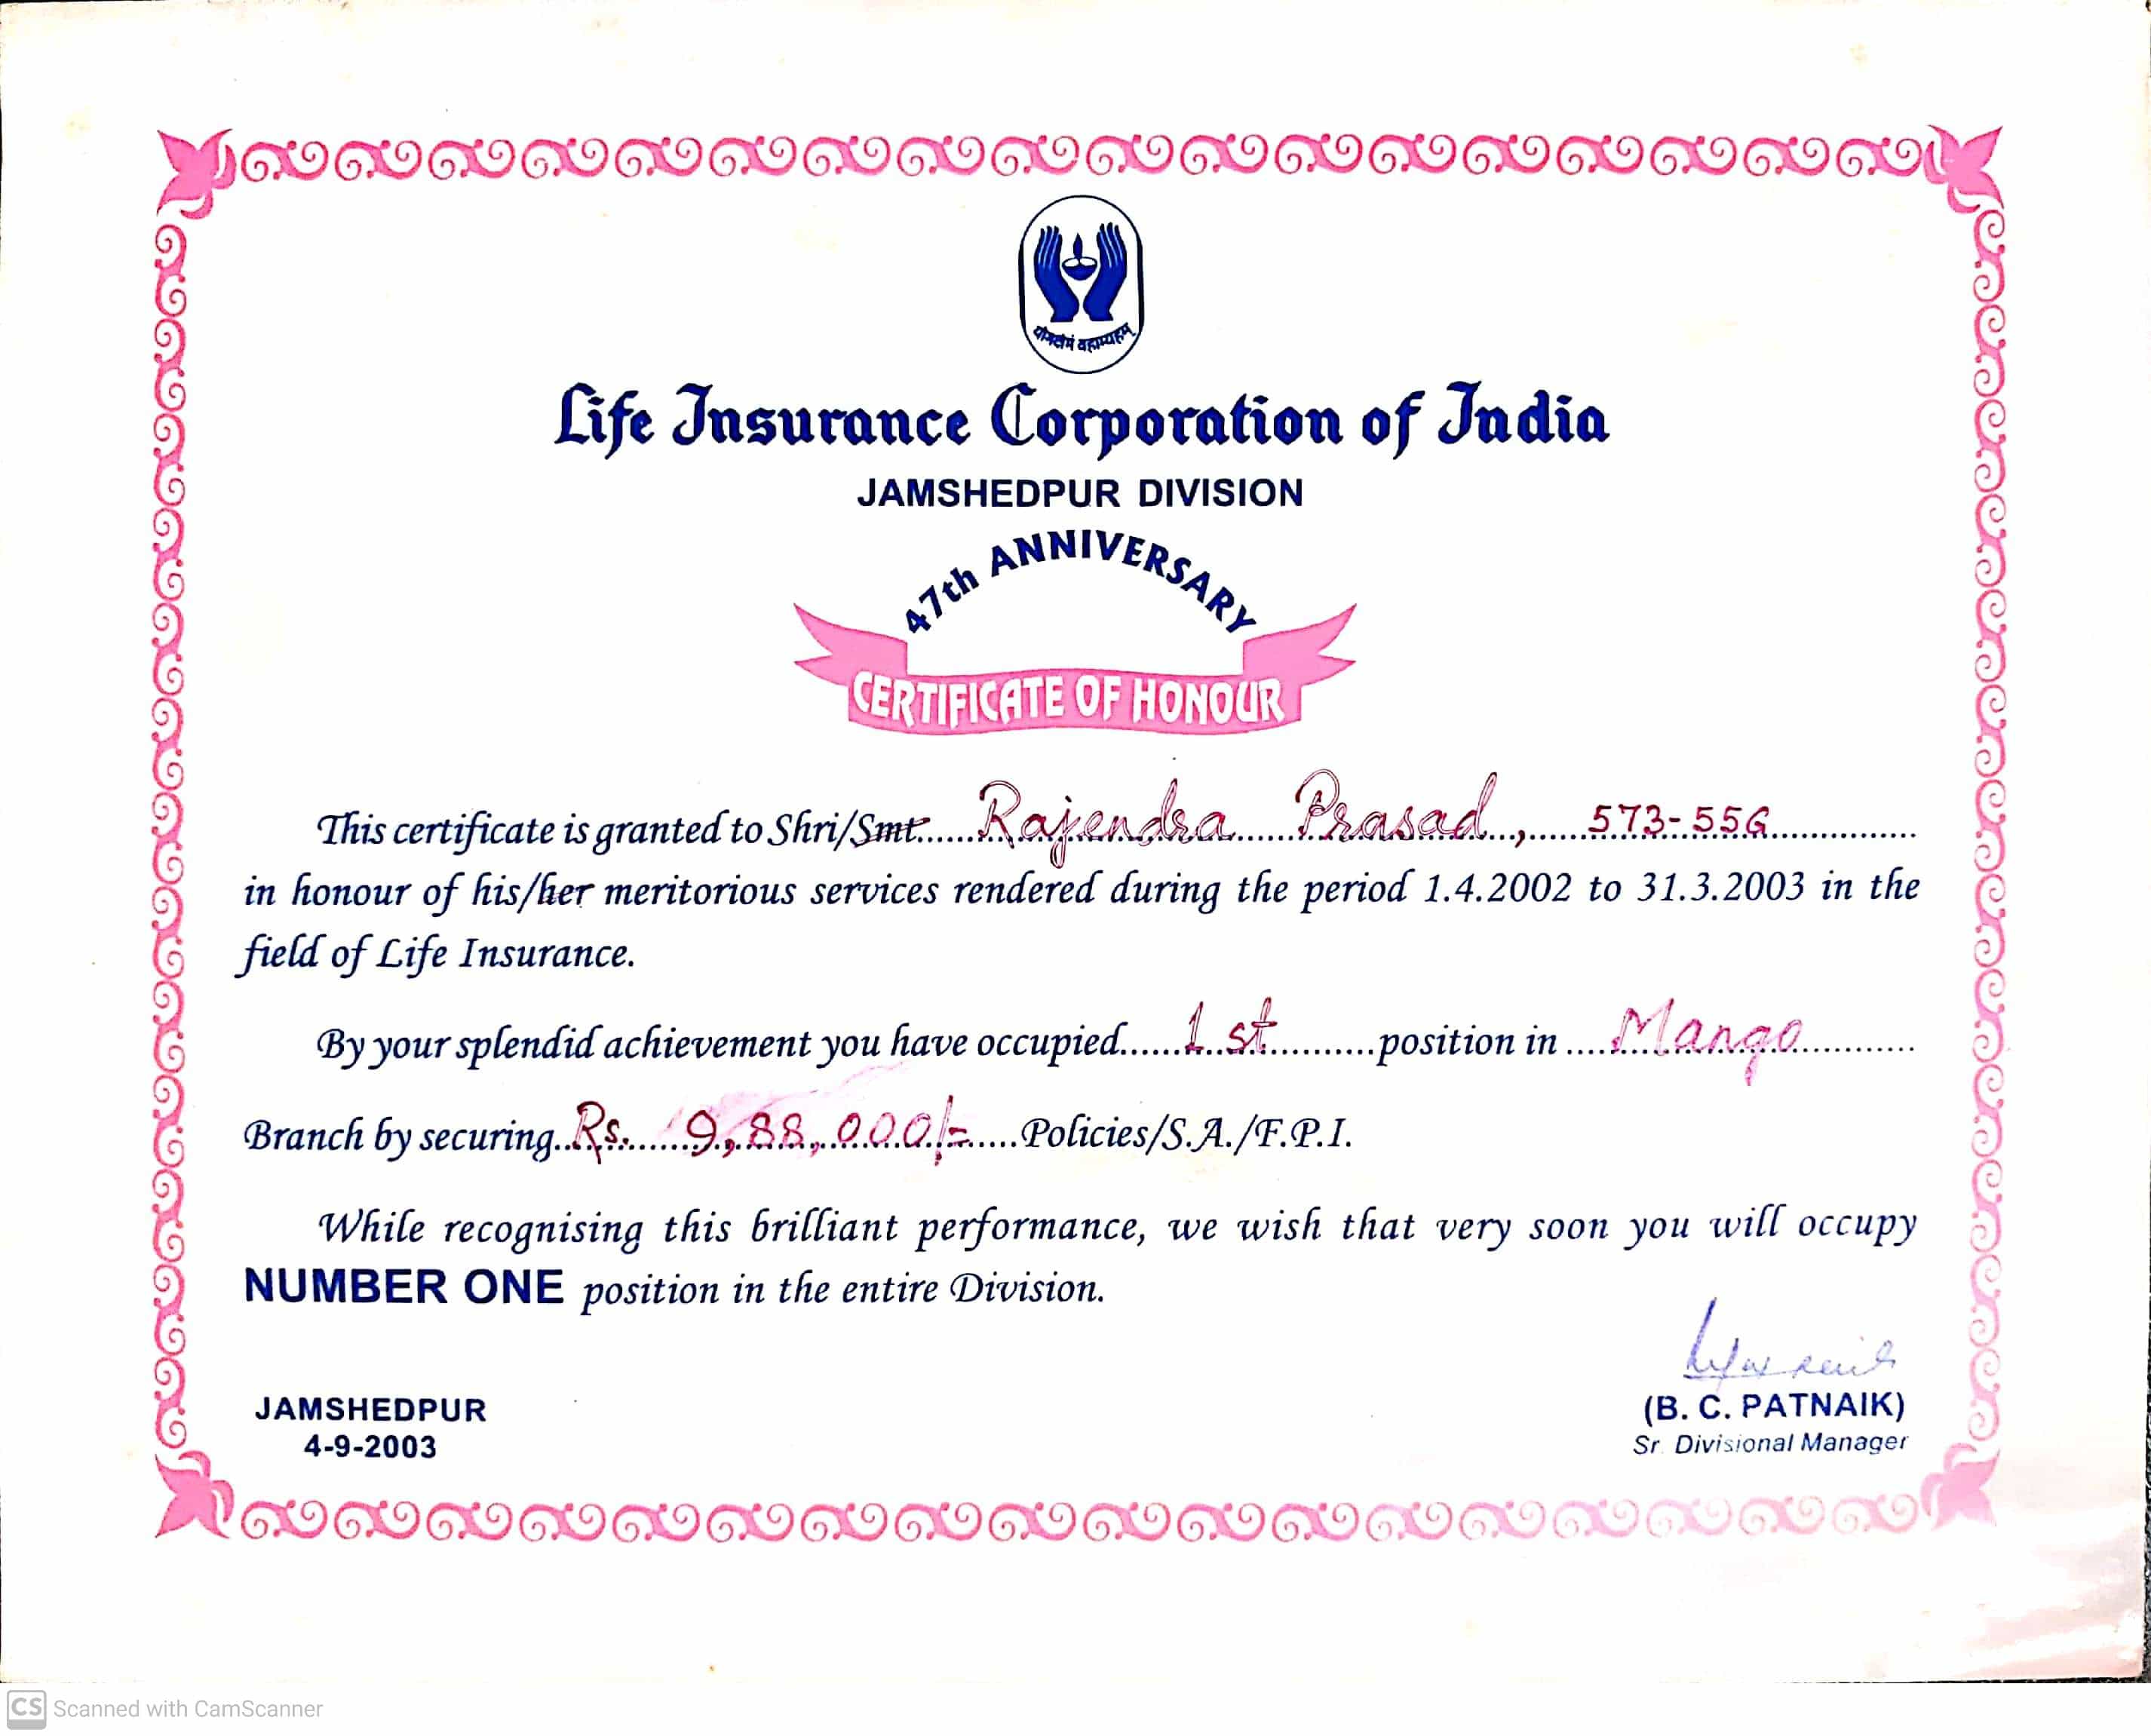 योगक्षेमं वहाम्यहम्
Life Insurance Corporation of India
JAMSHEDPUR DIVISION
47th ANNIVERSARY
CERTIFICATE OF HONOUR
This certificate is granted to Shri/Smt.....Rajendra.....Prasad..,.....573-55G..............
in honour of his/her meritorious services rendered during the period 1.4.2002 to 31.3.2003 in the
field of Life Insurance.
By your splendid achievement you have occupied......1st..........position in ....Mango..........
Branch by securing..Rs......9,88,000/=.....Policies/S.A./F.P.I.
While recognising this brilliant performance, we wish that very soon you will occupy
NUMBER ONE position in the entire Division.
JAMSHEDPUR
4-9-2003
(B. C. PATNAIK)
Sr. Divisional Manager
CS Scanned with CamScanner